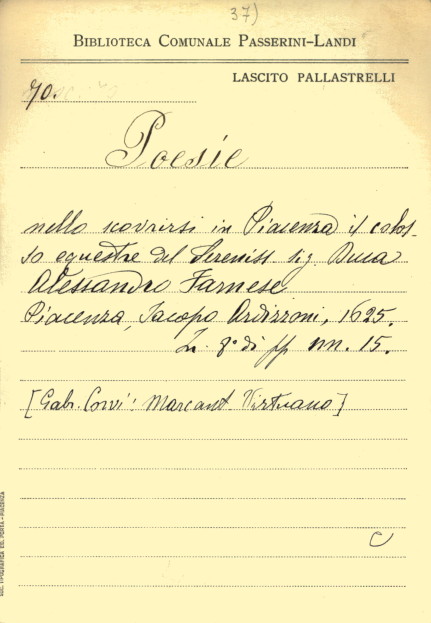 37)
BIBLIOTECA COMUNALE PASSERINI-LANDI
LASCITO PALLASTRELLI
70.
Poesie
nello scovrirsi in Piacenza il colos-
so equestre del Sereniss. sig. Duca
Alessandro Farnese
Piacenza, Jacopo Ardizzoni, 1625.
In 8° di pp nn. 15.
[Gabr. Corvi: Marcant. Virtuano]
C